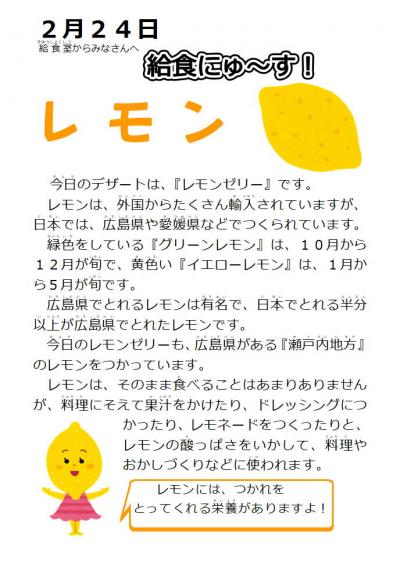 ２月２４日
給食室からみなさんへ
給食にゅ～す！
レモン
今日のデザートは、『レモンゼリー』です。
レモンは、外国からたくさん輸入されていますが、
日本では、広島県や愛媛県などでつくられています。
緑色をしている『グリーンレモン』は、１０月から
１２月が旬で、黄色い『イエローレモン』は、１月か
ら５月が旬です。
広島県でとれるレモンは有名で、日本でとれる半分
以上が広島県でとれたレモンです。
今日のレモンゼリーも、広島県がある『瀬戸内地方』
のレモンをつかっています。
レモンは、そのまま食べることはあまりありません
が、料理にそえて果汁をかけたり、ドレッシングにつ
かったり、レモネードをつくったりと、
レモンの酸っぱさをいかして、料理や
おかしづくりなどに使われます。
レモンには、つかれを
とってくれる栄養がありますよ！